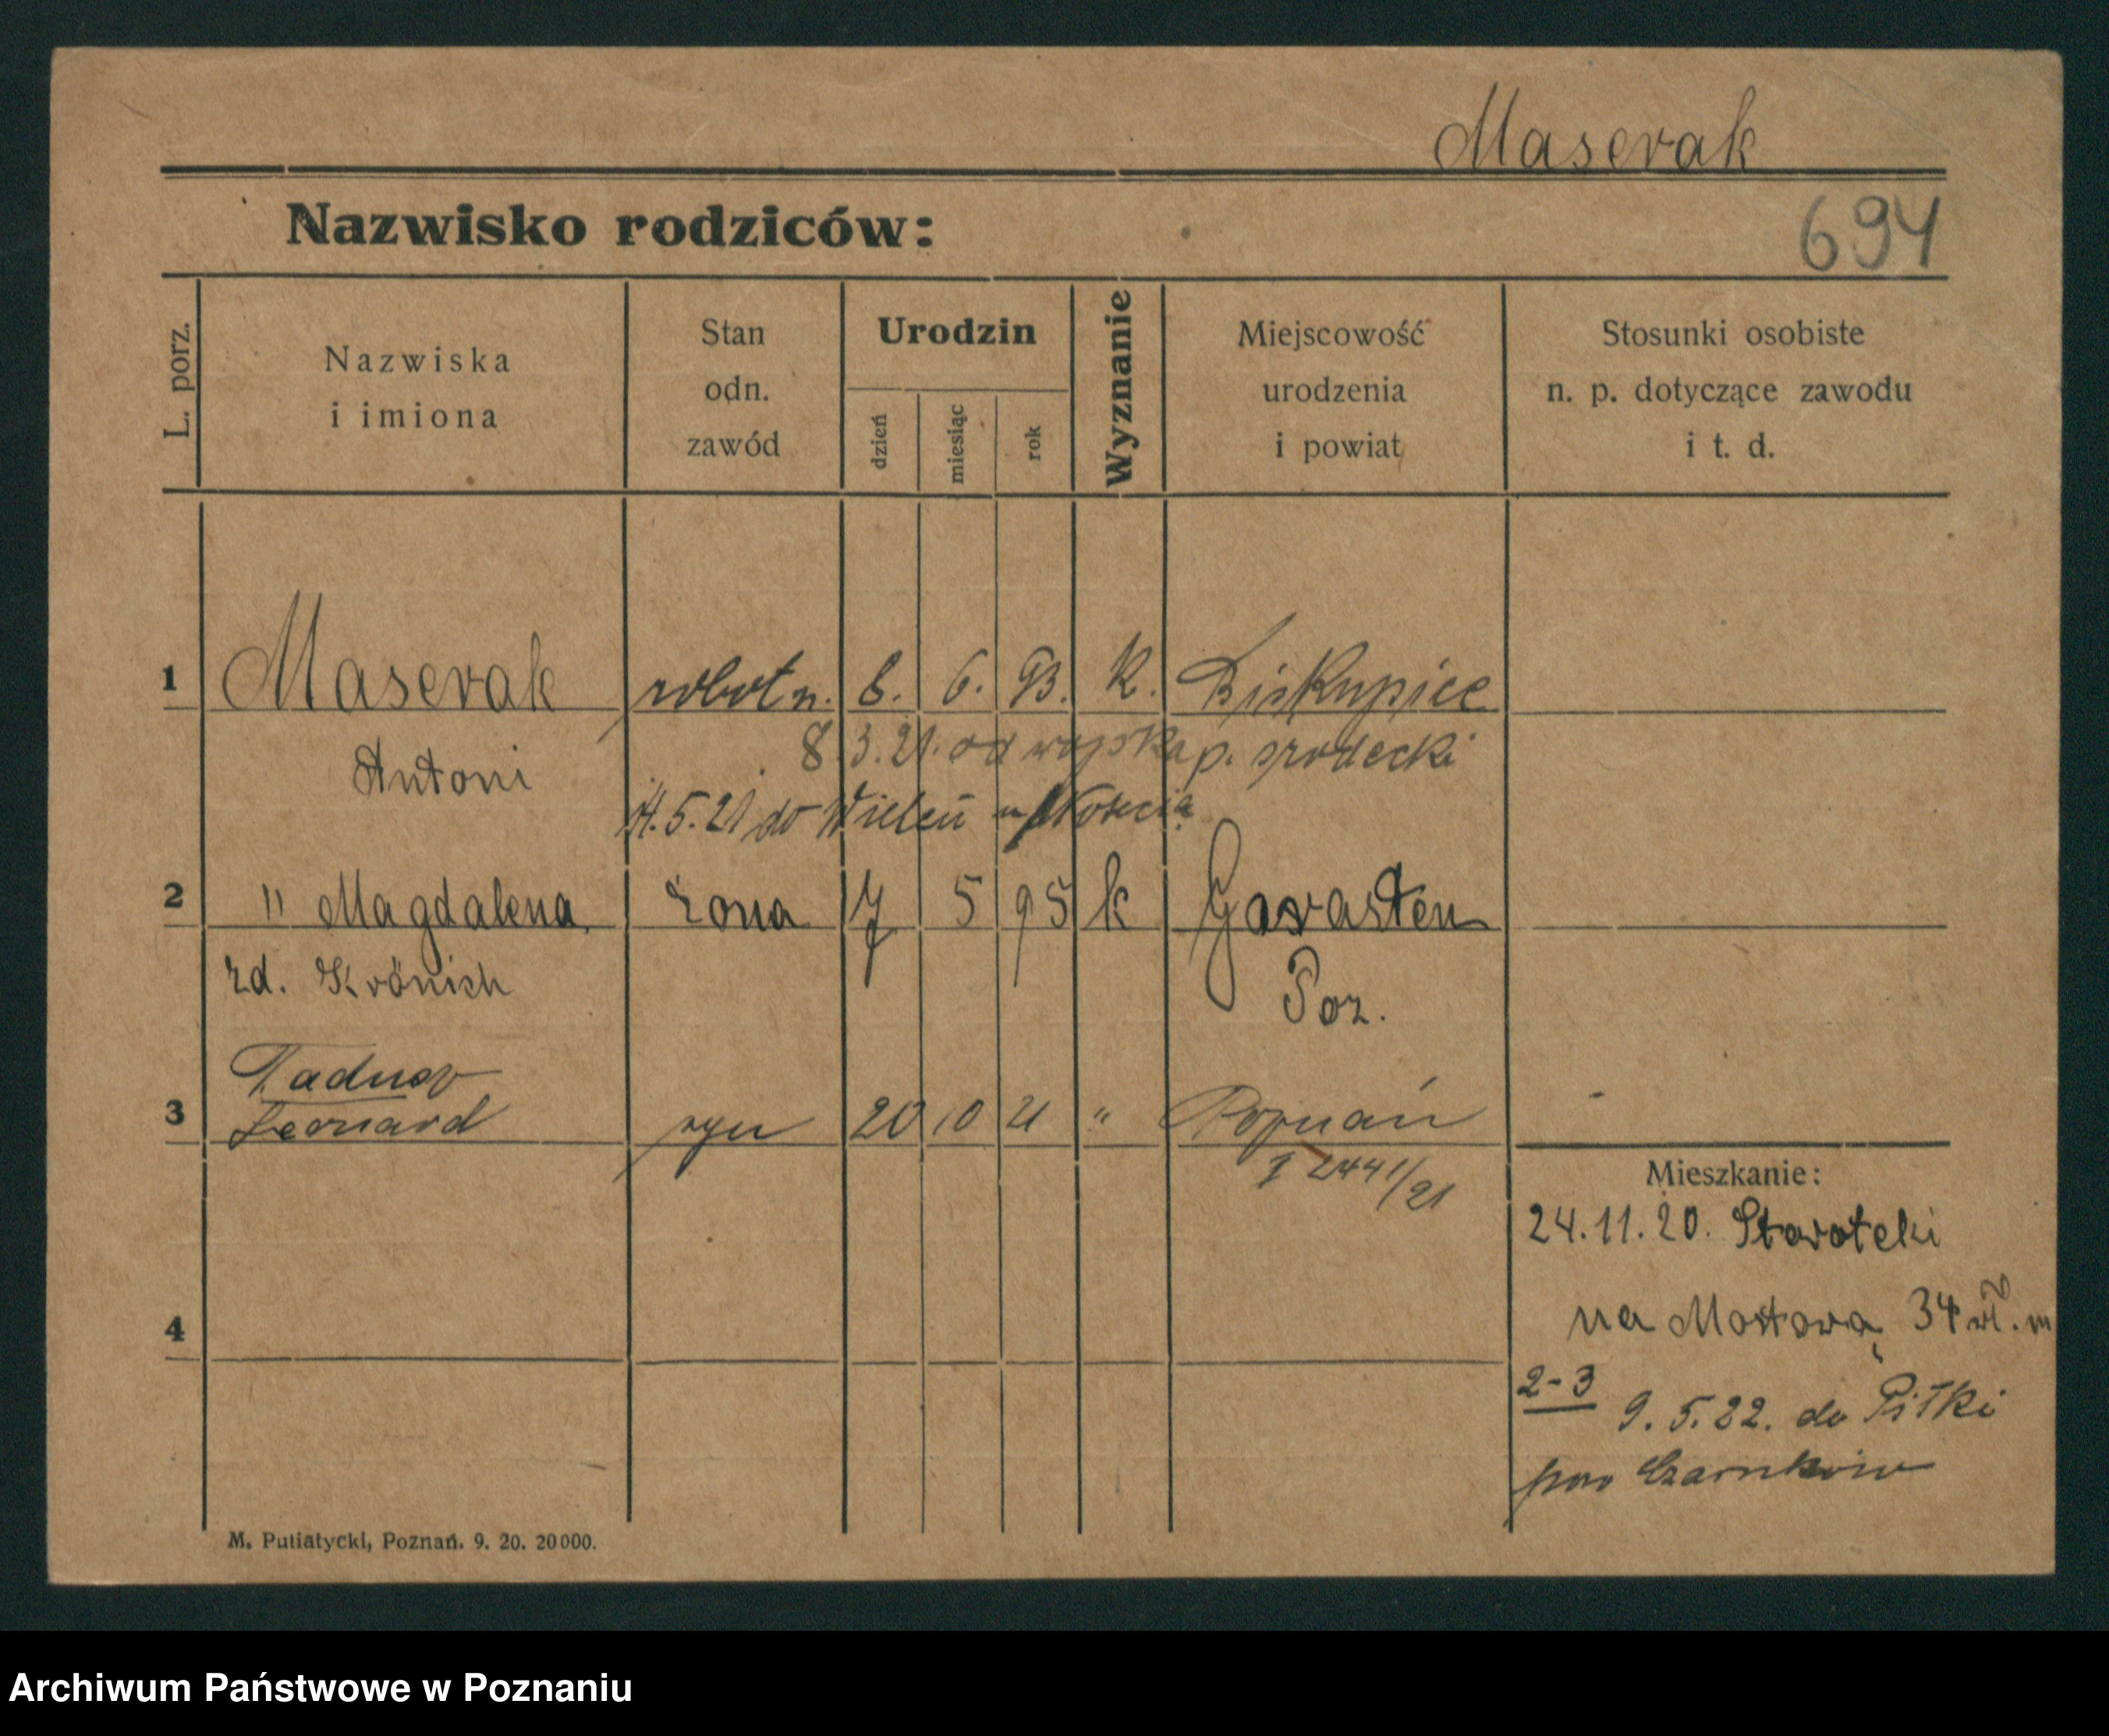 Maserak
Nazwisko rodziców:
694
L. porz.
Nazwiska
i imiona
Stan
odn.
zawód
Urodzin
dzień
miesiąc
rok
Wyznanie
Miejscowość
urodzenia
i powiat
Stosunki osobiste
n. p. dotyczące zawodu
i t. d.
1 Maserak robotn. 6. 6. 93. K. Biskupice
Antoni
8.3.21. od wojska p. srodecki
5.21 do Wieleń n/Notecią
2 " Magdalena żona 7 5 95 k
zd. Krönich
Poz.
Tadusz
3 Leonard syn 20 10 21 " Poznań
I 2441/21
Mieszkanie:
24.11.20. Starołęki
na Mostową 34 m
4
2-3
9.5.22. do Piłki
pow Czarnków
M. Putiatycki, Poznań. 9. 20. 20000.
Archiwum Państwowe w Poznaniu